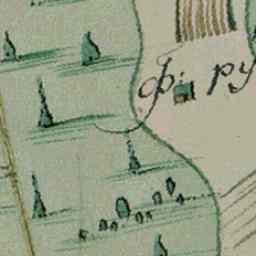 ф. ру